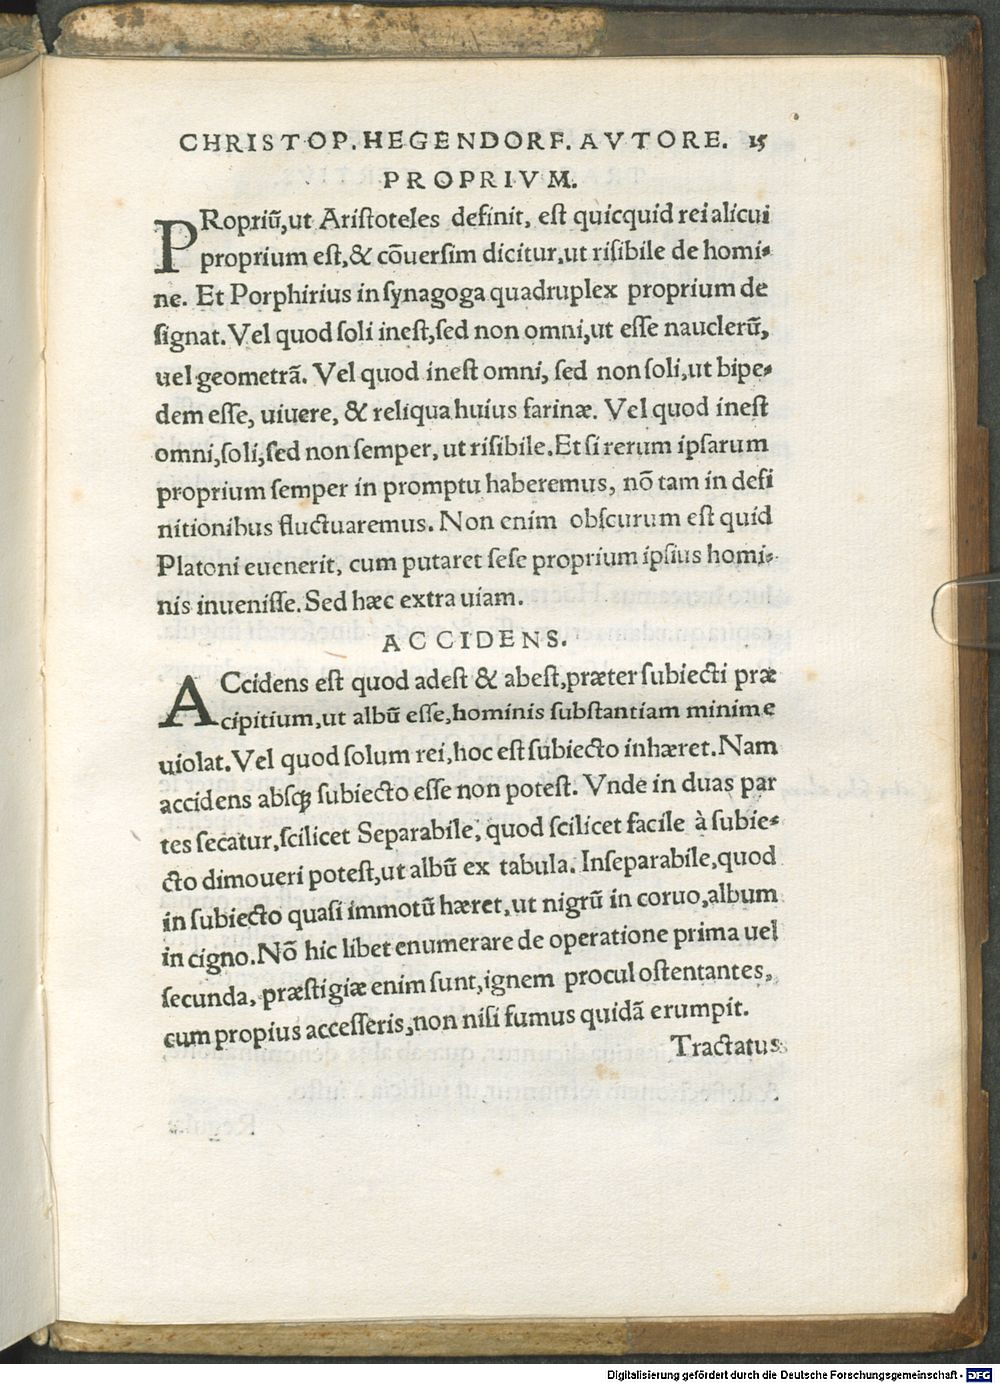 CHRISTOP. HEGENDORF. AVTORE. 15
PROPRIVM.
PRopriũ, ut Ariſtoteles definit, eſt quicquid rei alicui
proprium eſt, & cõuerſim dicitur, ut riſibile de homi-
ne. Et Porphirius in ſynagoga quadruplex proprium de
ſignat. Vel quod ſoli ineſt, ſed non omni, ut eſſe nauclerũ,
uel geometrã. Vel quod ineſt omni, ſed non ſoli, ut bipe-
dem eſſe, uiuere, & reliqua huius farinæ. Vel quod ineſt
omni, ſoli, ſed non ſemper, ut riſibile. Et ſi rerum ipſarum
proprium ſemper in promptu haberemus, nõ tam in defi
nitionibus fluctuaremus. Non enim obſcurum eſt quid
Platoni euenerit, cum putaret ſeſe proprium ipſius homi-
nis inueniſſe. Sed hæc extra uiam.
ACCIDENS.
ACcidens eſt quod adeſt & abeſt, præter ſubiecti præ
cipitium, ut albũ eſſe, hominis ſubſtantiam minime
uiolat. Vel quod ſolum rei, hoc eſt ſubiecto inhæret. Nam
accidens abſqꝫ ſubiecto eſſe non poteſt. Vnde in duas par
tes ſecatur, ſcilicet Separabile, quod ſcilicet facile à ſubie-
cto dimoueri poteſt, ut albũ ex tabula. Inſeparabile, quod
in ſubiecto quaſi immotũ hæret, ut nigrũ in coruo, album
in cigno. Nõ hic libet enumerare de operatione prima uel
ſecunda, præſtigiæ enim ſunt, ignem procul oſtentantes,
cum propius acceſſeris, non niſi fumus quidã erumpit.
Tractatus
Digitalisierung gefördert durch die Deutsche Forschungsgemeinschaft - DFG